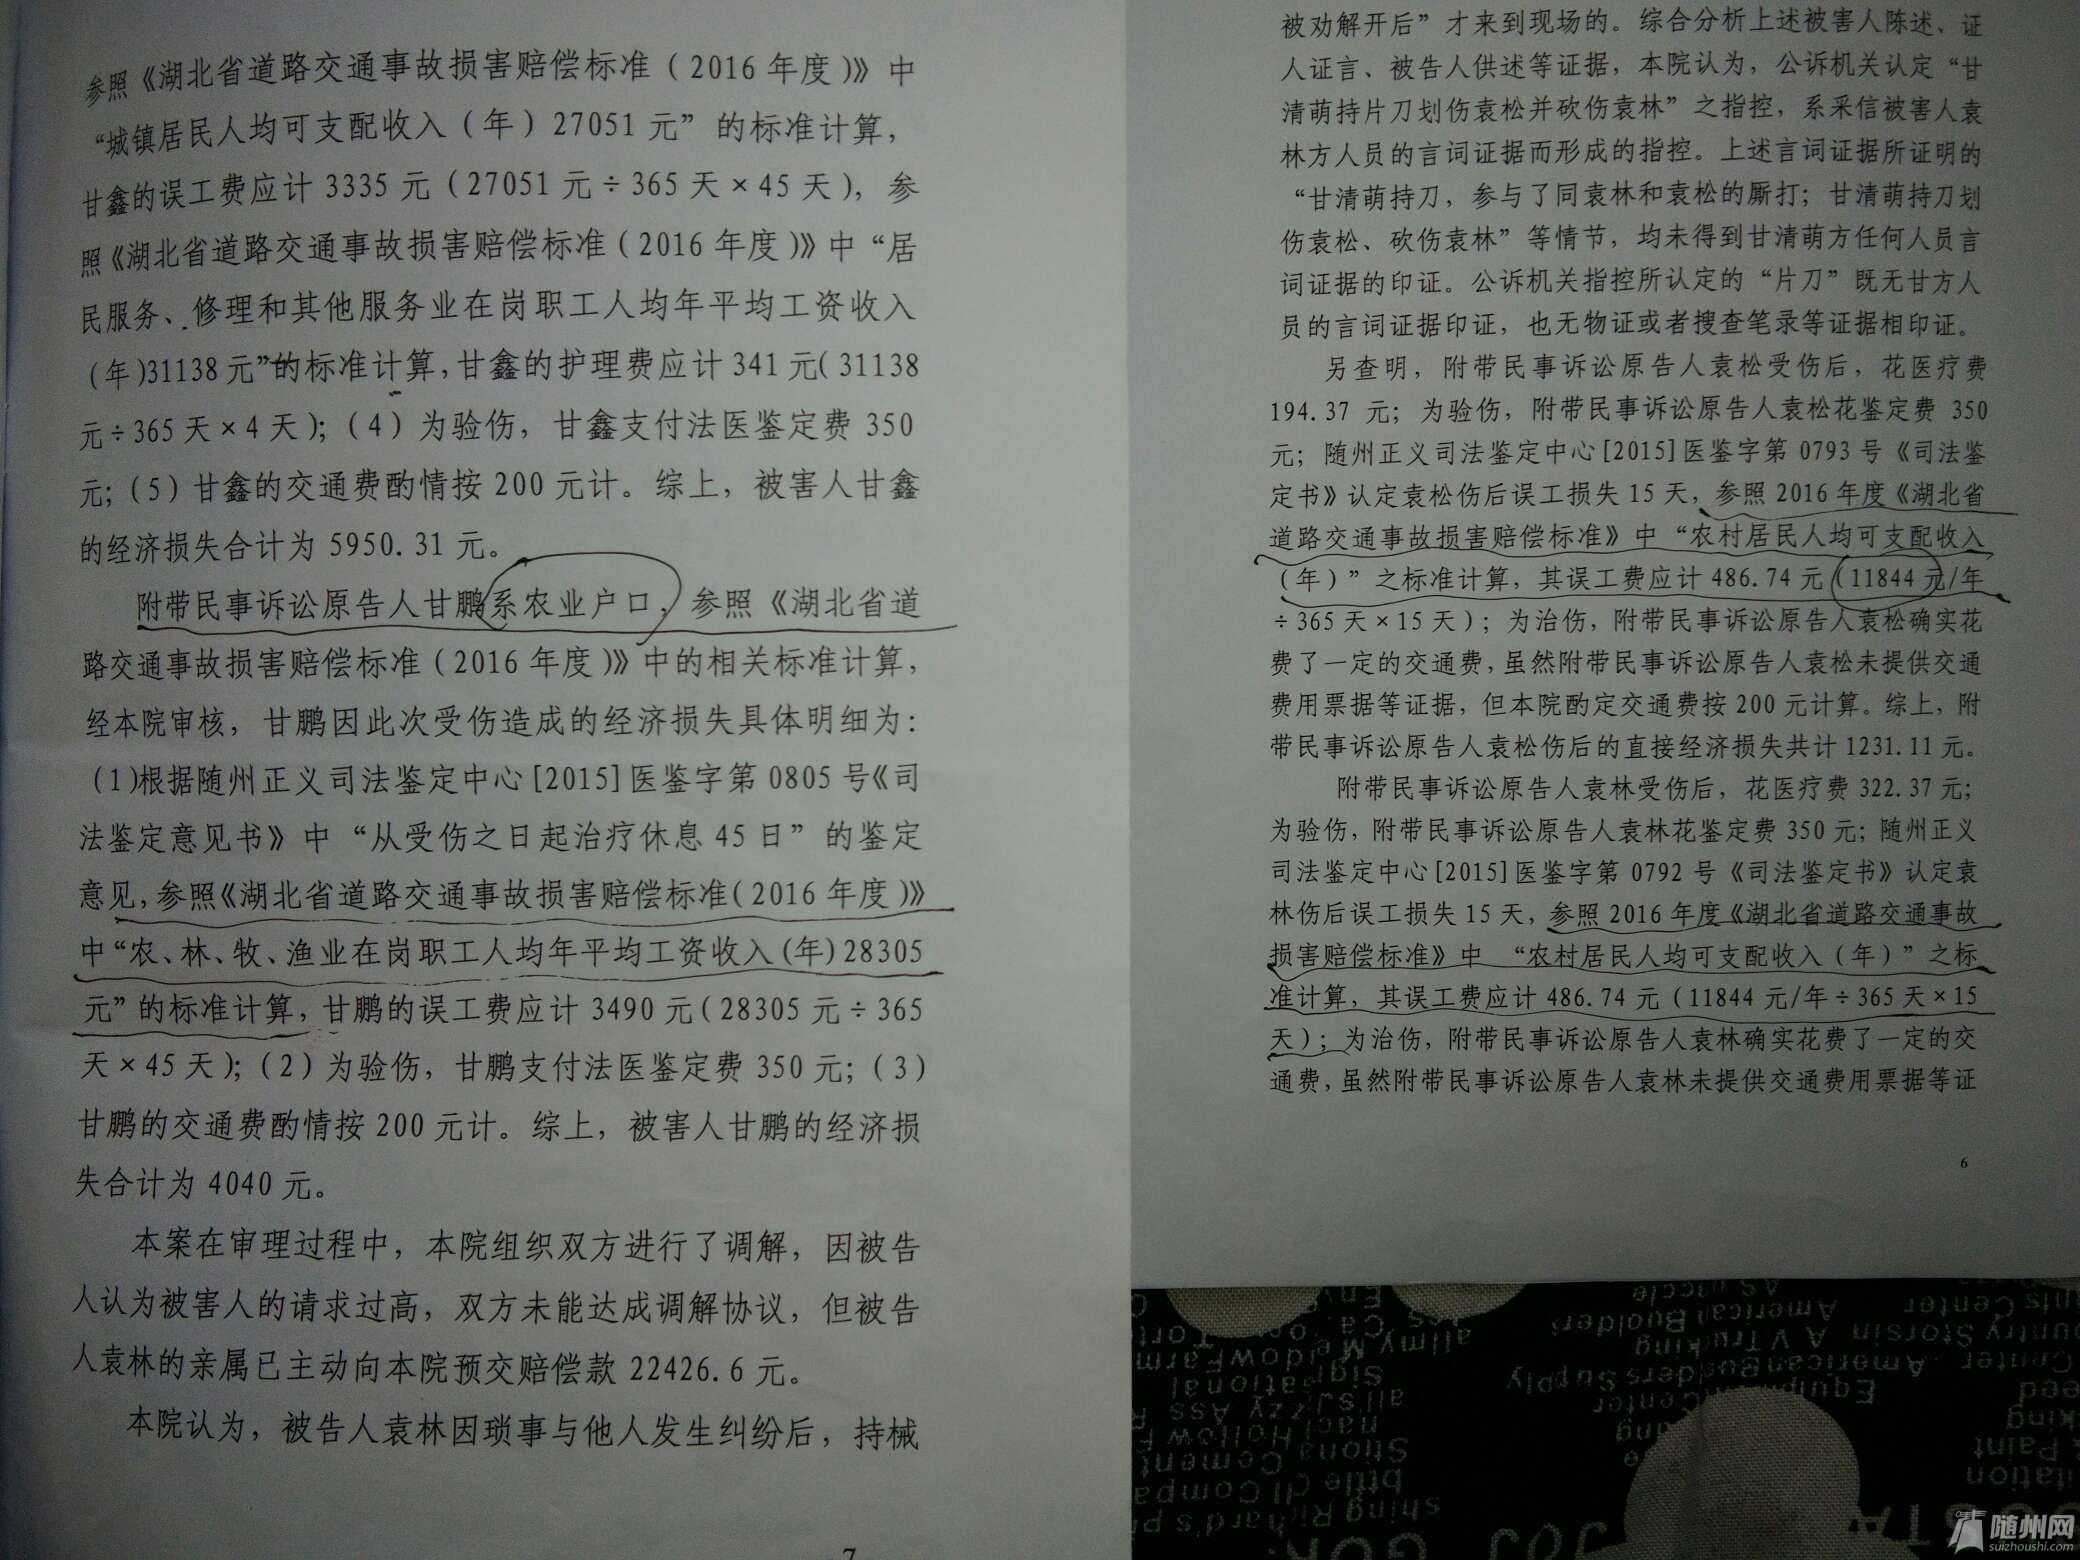 参照《湖北省道路交通事故损害赔偿标准（2016年度）》中
“城镇居民人均可支配收入（年）27051元”的标准计算，
甘鑫的误工费应计3335元（27051元÷365天×45天），参
照《湖北省道路交通事故损害赔偿标准（2016年度）》中“居
民服务、修理和其他服务业在岗职工人均年平均工资收入
（年）31138元”的标准计算，甘鑫的护理费应计341元（31138
元÷365天×4天）；（4）为验伤，甘鑫支付法医鉴定费350
元；（5）甘鑫的交通费酌情按200元计。综上，被害人甘鑫
的经济损失合计为5950.31元。
附带民事诉讼原告人甘鹏系农业户口，参照《湖北省道
路交通事故损害赔偿标准（2016年度）》中的相关标准计算，
经本院审核，甘鹏因此次受伤造成的经济损失具体明细为：
（1）根据随州正义司法鉴定中心[2015]医鉴字第0805号《司
法鉴定意见书》中“从受伤之日起治疗休息45日”的鉴定
意见，参照《湖北省道路交通事故损害赔偿标准（2016年度）》
中“农、林、牧、渔业在岗职工人均年平均工资收入（年）28305
元”的标准计算，甘鹏的误工费应计3490元（28305元÷365
天×45天）；（2）为验伤，甘鹏支付法医鉴定费350元；（3）
甘鹏的交通费酌情按200元计。综上，被害人甘鹏的经济损
失合计为4040元。
本案在审理过程中，本院组织双方进行了调解，因被告
人认为被害人的请求过高，双方未能达成调解协议，但被告
人袁林的亲属已主动向本院预交赔偿款22426.6元。
本院认为，被告人袁林因琐事与他人发生纠纷后，持械
7
被劝解开后”才来到现场的。综合分析上述被害人陈述、证
人证言、被告人供述等证据，本院认为，公诉机关认定“甘
清萌持片刀划伤袁松并砍伤袁林”之指控，系采信被害人袁
林方人员的言词证据而形成的指控。上述言词证据所证明的
“甘清萌持刀，参与了同袁林和袁松的厮打；甘清萌持刀划
伤袁松、砍伤袁林”等情节，均未得到甘清萌方任何人员言
词证据的印证。公诉机关指控所认定的“片刀”既无甘方人
员的言词证据印证，也无物证或者搜查笔录等证据相印证。
另查明，附带民事诉讼原告人袁松受伤后，花医疗费
194.37元；为验伤，附带民事诉讼原告人袁松花鉴定费350
元；随州正义司法鉴定中心[2015]医鉴字第0793号《司法鉴
定书》认定袁松伤后误工损失15天，参照2016年度《湖北省
道路交通事故损害赔偿标准》中“农村居民人均可支配收入
（年）”之标准计算，其误工费应计486.74元（11844元/年
÷365天×15天）；为治伤，附带民事诉讼原告人袁松确实花
费了一定的交通费，虽然附带民事诉讼原告人袁松未提供交通
费用票据等证据，但本院酌定交通费按200元计算。综上，附
带民事诉讼原告人袁松伤后的直接经济损失共计1231.11元。
附带民事诉讼原告人袁林受伤后，花医疗费322.37元；
为验伤，附带民事诉讼原告人袁林花鉴定费350元；随州正义
司法鉴定中心[2015]医鉴字第0792号《司法鉴定书》认定袁
林伤后误工损失15天，参照2016年度《湖北省道路交通事故
损害赔偿标准》中“农村居民人均可支配收入（年）”之标
准计算，其误工费应计486.74元（11844元/年÷365天×15
天）；为治伤，附带民事诉讼原告人袁林确实花费了一定的交
通费，虽然附带民事诉讼原告人袁林未提供交通费用票据等证
6
随州网
suizhoushi.com